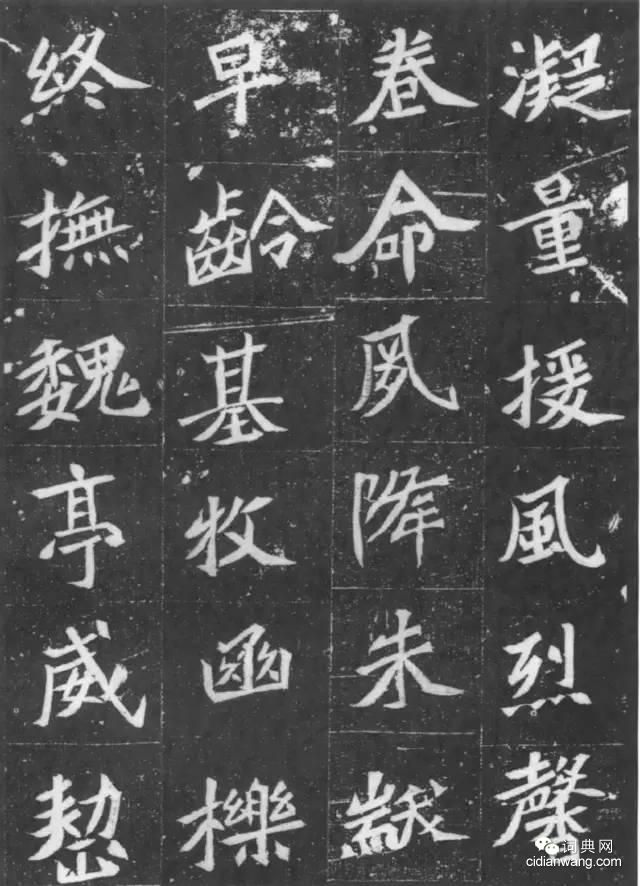 凝量援風烈馨
眷命夙降朱黻
早齡基牧函櫟
終撫魏亭威
词典网
cidianwang.com